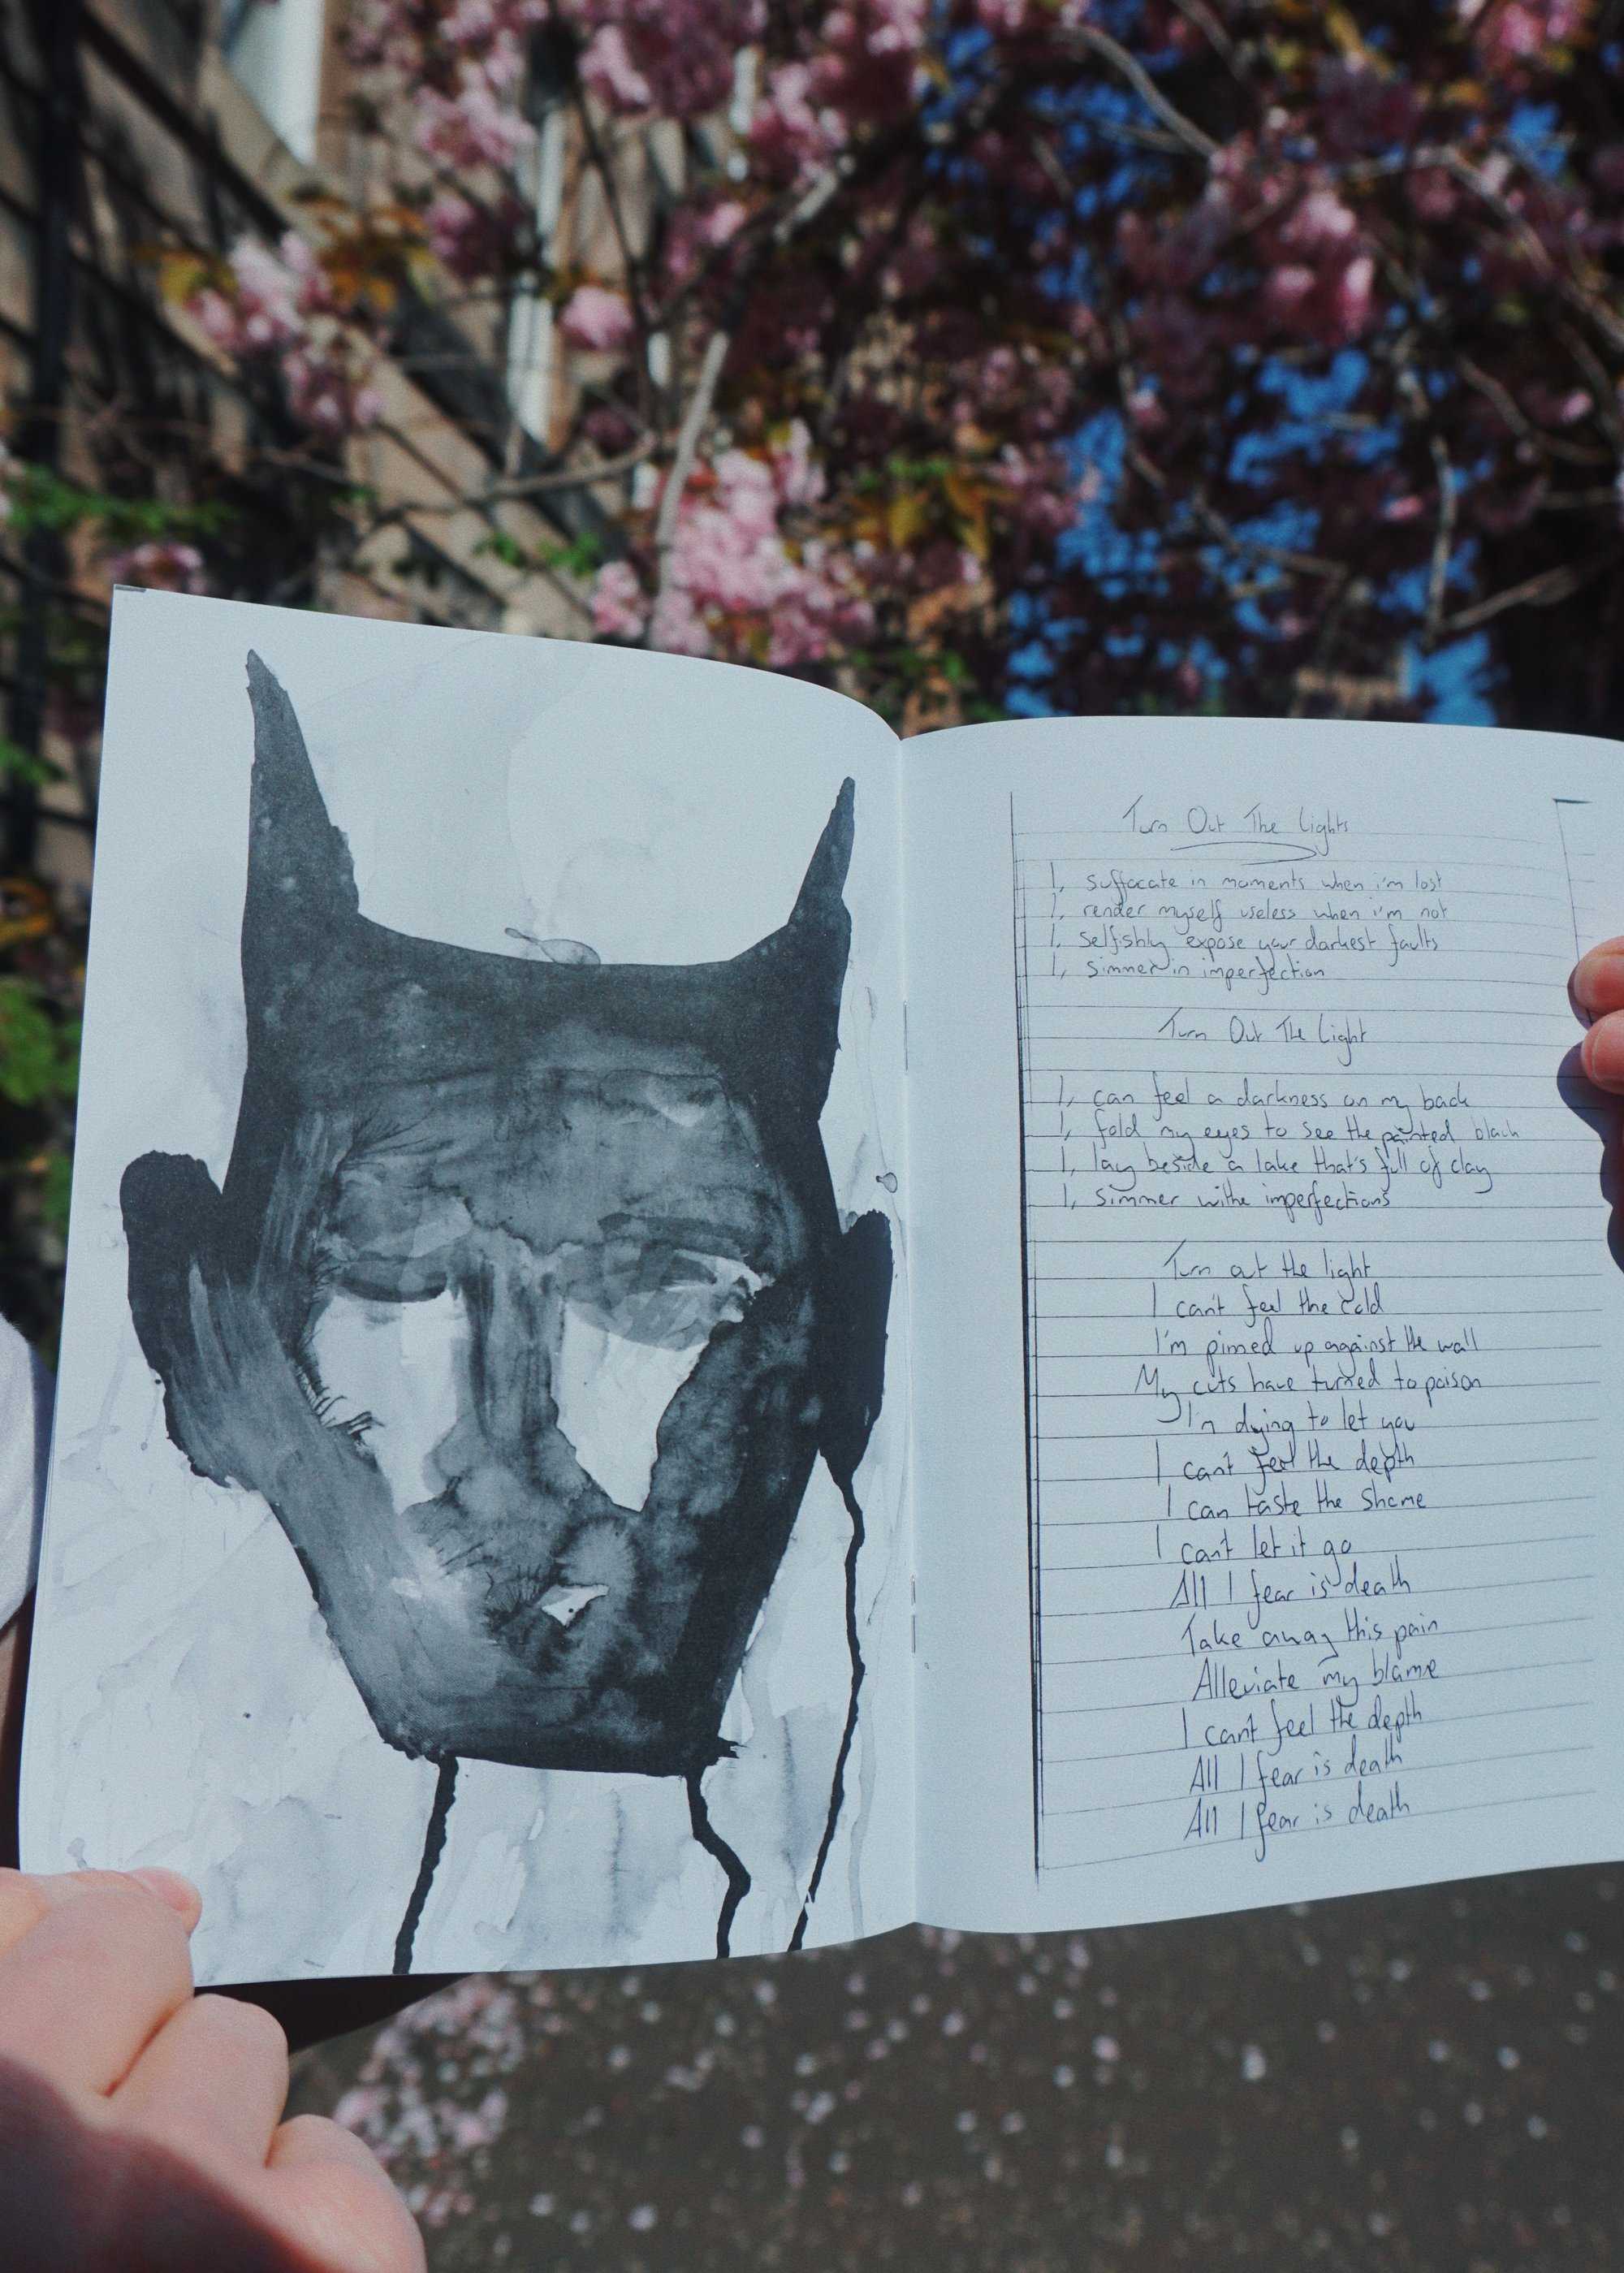 Turn Out The Lights
I, suffocate in moments when i'm lost
I, render myself useless when i'm not
I, selfishly expose your darkest faults
I, simmer in imperfection
Turn Out The Light
I, can feel a darkness on my back
I, fold my eyes to see the painted black
I, lay beside a lake that's full of clay
I, simmer withe imperfections
Turn out the light
I can't feel the cold
I'm pinned up against the wall
My cuts have turned to poison
I'm dying to let you
I can't feel the depth
I can taste the shame
I can't let it go
All I fear is death
Take away this pain
Alleviate my blame
I can't feel the depth
All I fear is death
All I fear is death